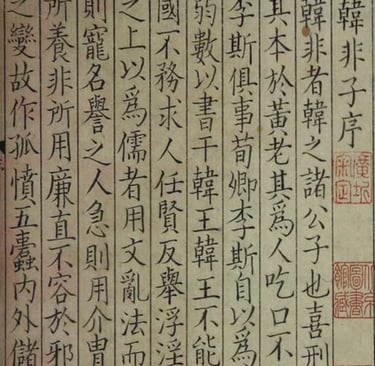 韓非子序
韓非者韓之諸公子也喜刑
其本於黃老其為人吃口不
李斯俱事荀卿李斯自以為
弱數以書干韓王韓王不能
國不務求人任賢反舉浮淫
之上以為儒者用文亂法而
則寵名譽之人急則用介冑
所養非所用廉直不容於邪
變故作孤憤五蠹內外儲